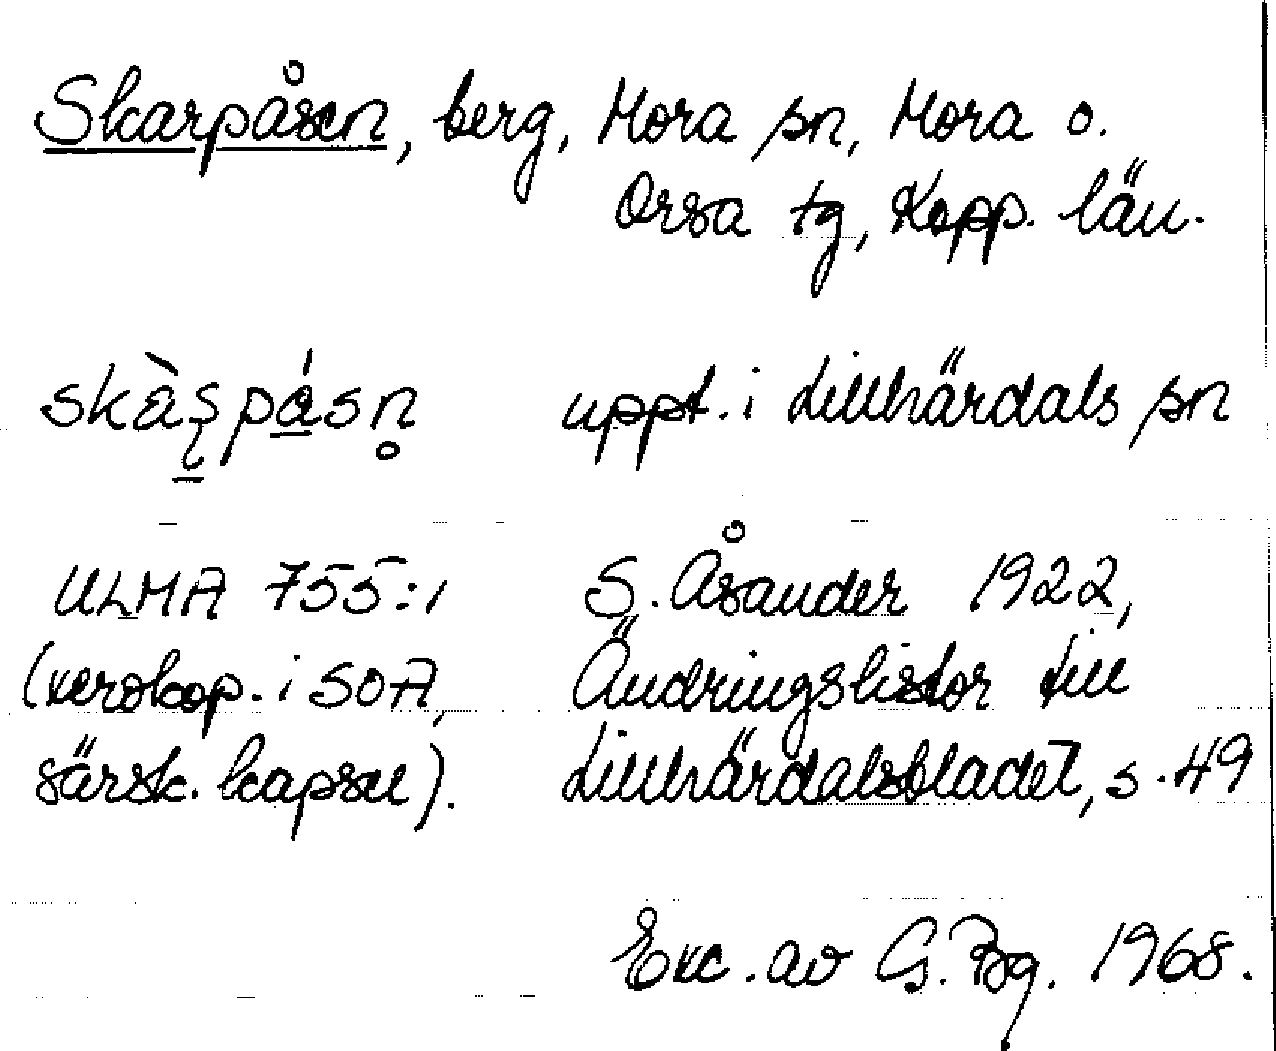 Skarpåsen, berg, Mora sn, Mora o.
Orsa tg, Kopp. län.
skàșpásn̥ uppt. i Lillhärdals sn
ULMA 755:1 S. Åsander 1922,
(xerokop. i SOA, Ändringslistor till
särsk. kapsel). Lillhärdalsbladet, s. 49
Exc. av G. Bg. 1968.